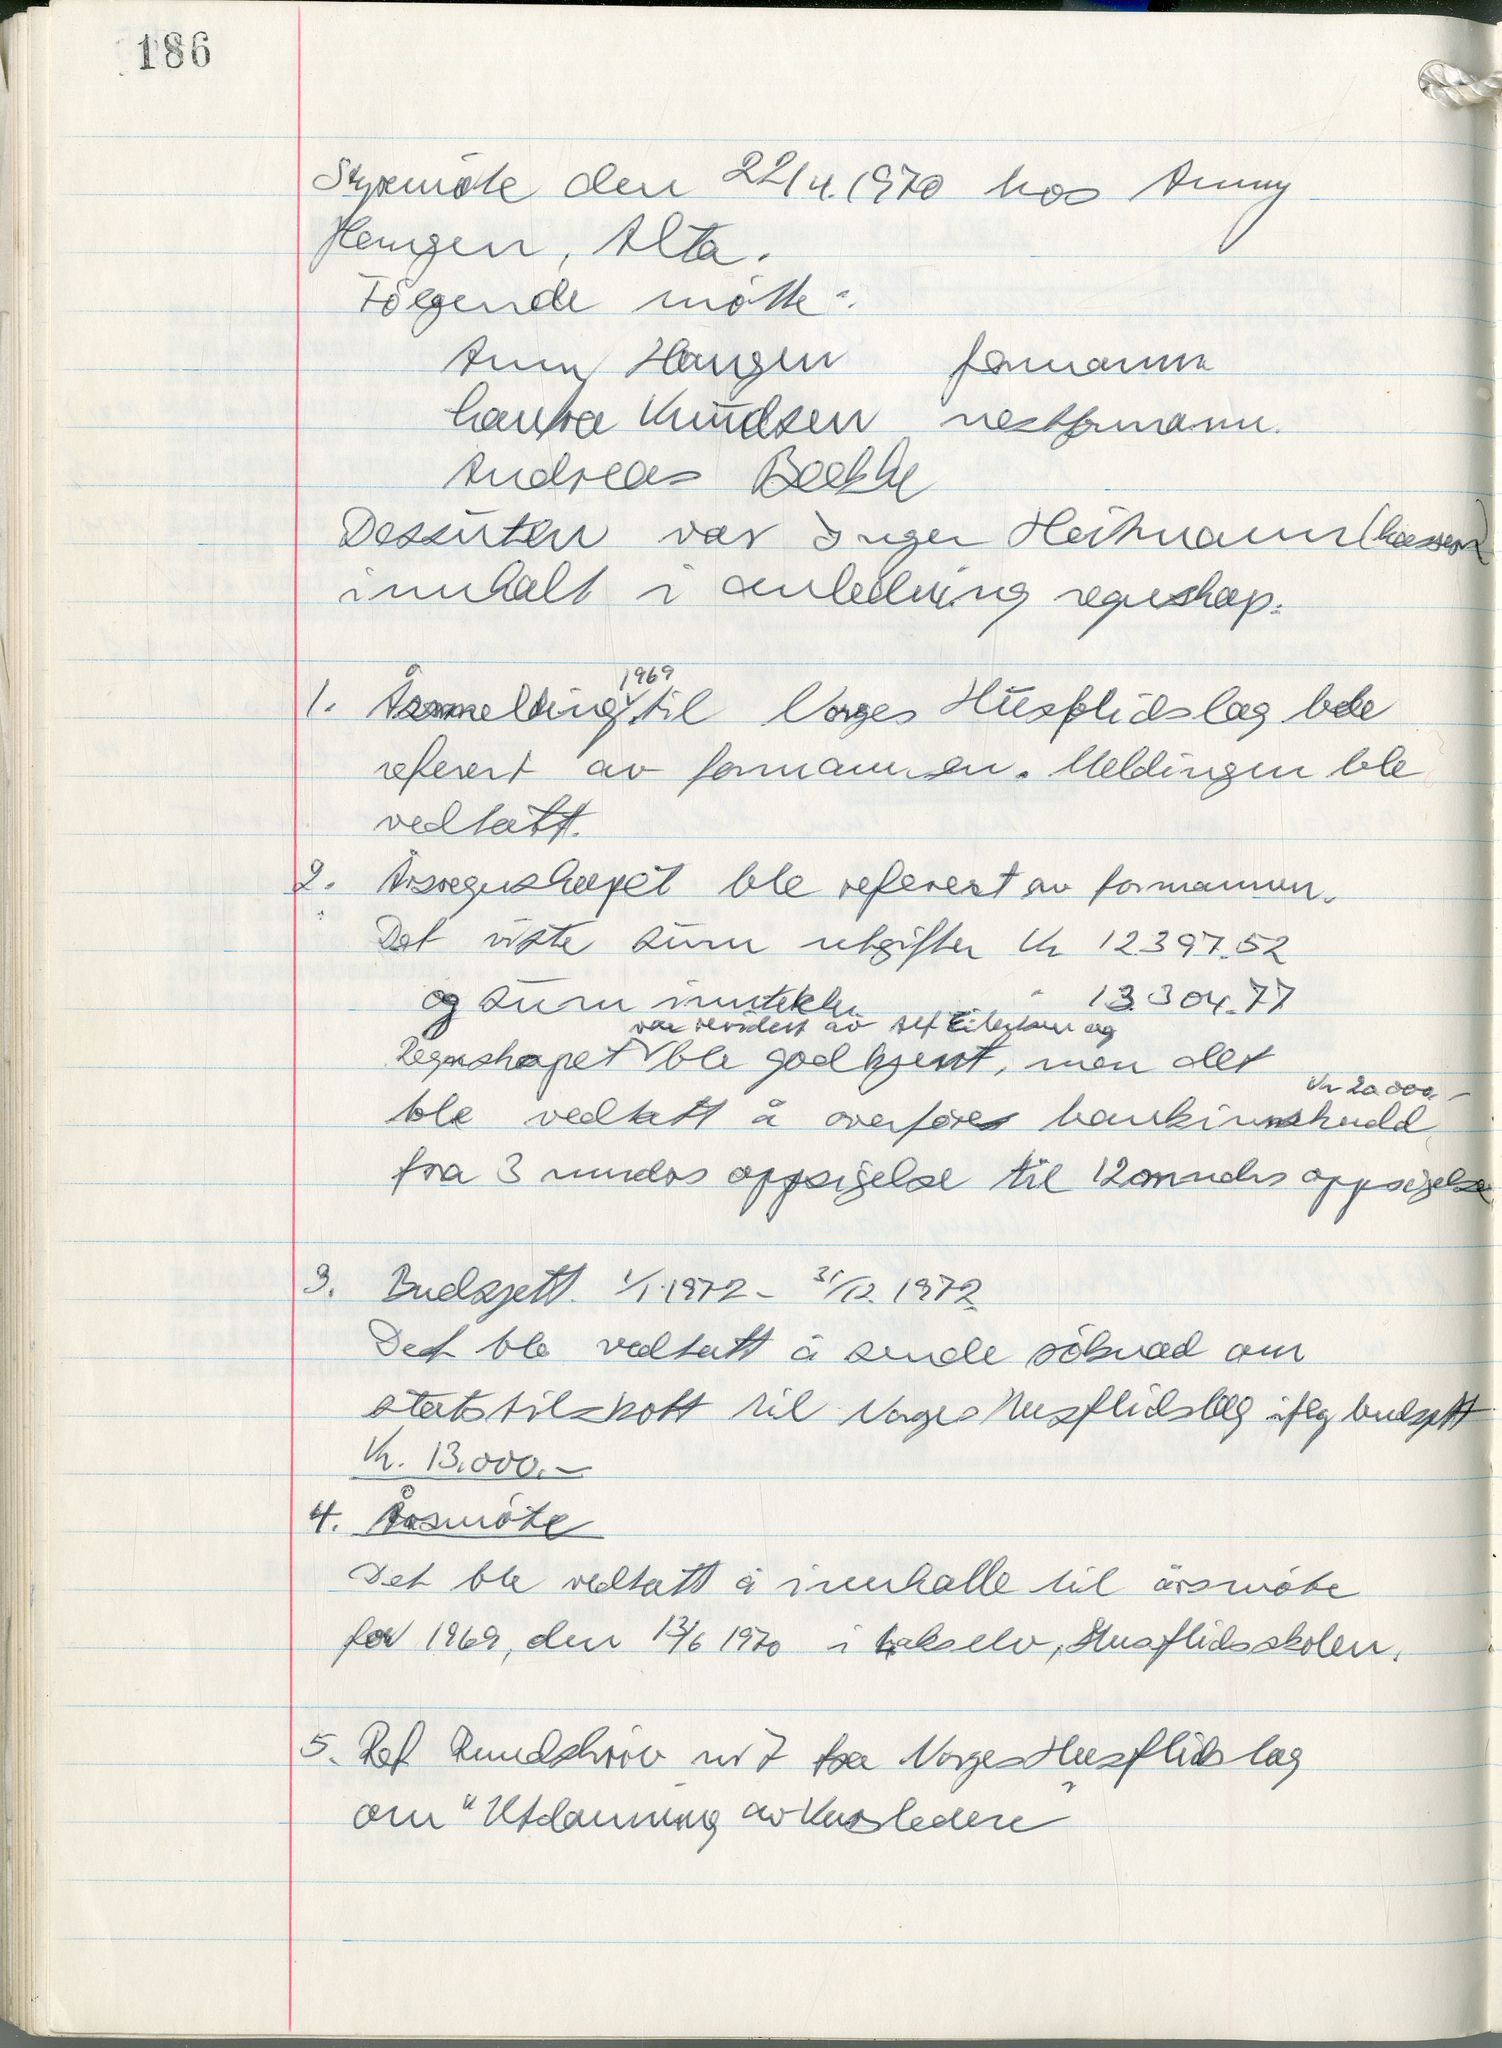 186
Styremöte den 22/4.1970 hos Anny
Haugen, Alta.
Fölgende mötte:
Anny Haugen formann
Laura Knudsen nestformann.
Andreas Bakke
Dessuten var Inger Heitmann (kasserer)
innkalt i anledning regnskap.
1. Årsmelding 1969 til Norges Husflidslag ble
referert av formannen. Meldingen ble
vedtatt.
2. Årsregnskapet ble referert av formannen.
Det viste sum utgifter Kr 12397.52
og sum inntekter " 13304.77
var revidert av Alf og
Regnskapet ble godkjent, men det
Kr 20.000.-
ble vedtatt å overföres bankinnskudd
fra 3 mndrs oppsigelse til 12 mndrs oppsigelse
3. Budsjett 1/1.1972 - 31/12 1972
Det ble vedtatt å sende söknad om
statstilskott til Norges Husflidslag iflg budsjett
Kr. 13.000.-
4. Årsmöte
Det ble vedtatt å innkalle til årsmöte
for 1969, den 13/6 1970 i Lakselv, Husflidsskolen.
5. Ref Rundskriv nr 7 fra Norges Husflidslag
om "Utdanning av Kursledere"